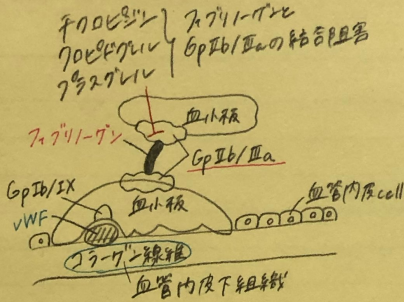 チクロピジン
クロピドグレル
プラスグレル
フィブリノーゲンと
GpⅡb/Ⅲaの結合阻害
血小板
フィブリノーゲン
GpⅡb/Ⅲa
GpⅠb/Ⅸ
血小板
血管内皮cell
vWF
コラーゲン線維
血管内皮下組織